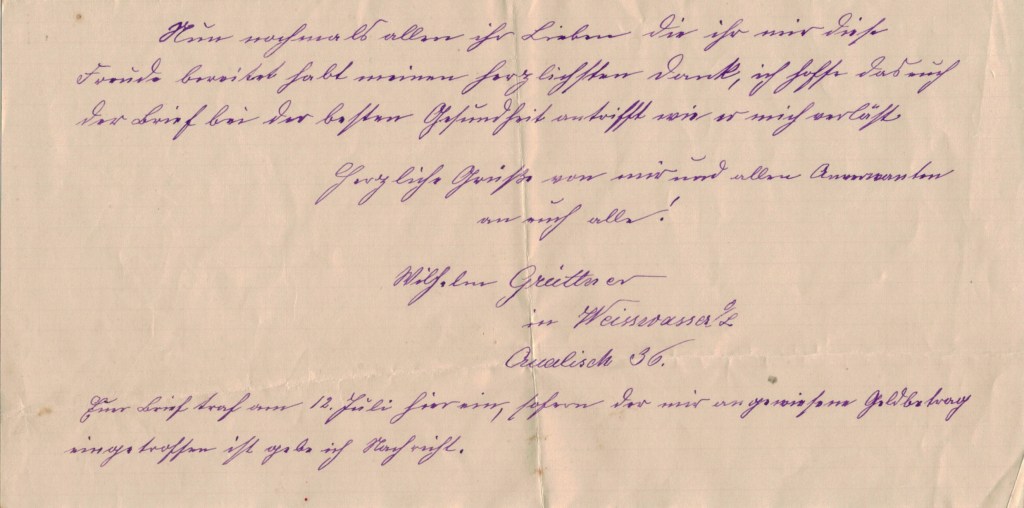 Nun nochmals allen ihr Lieben die ihr mir diese
Freude bereitet habt meinen herzlichsten Dank, ich hoffe das euch
der Brief bei der besten Gesundheit antrifft wie er mich verläst
Herzliche Grüße von mir und allen Anverwanten
an euch alle!
Wilhelm Grüttner
in Weisswasser O/L
36.
Euer Brief traf am 12. Juli hier ein, sofern der mir angewiesene Geldbetrag
eingetroffen ist gebe ich Nachricht.